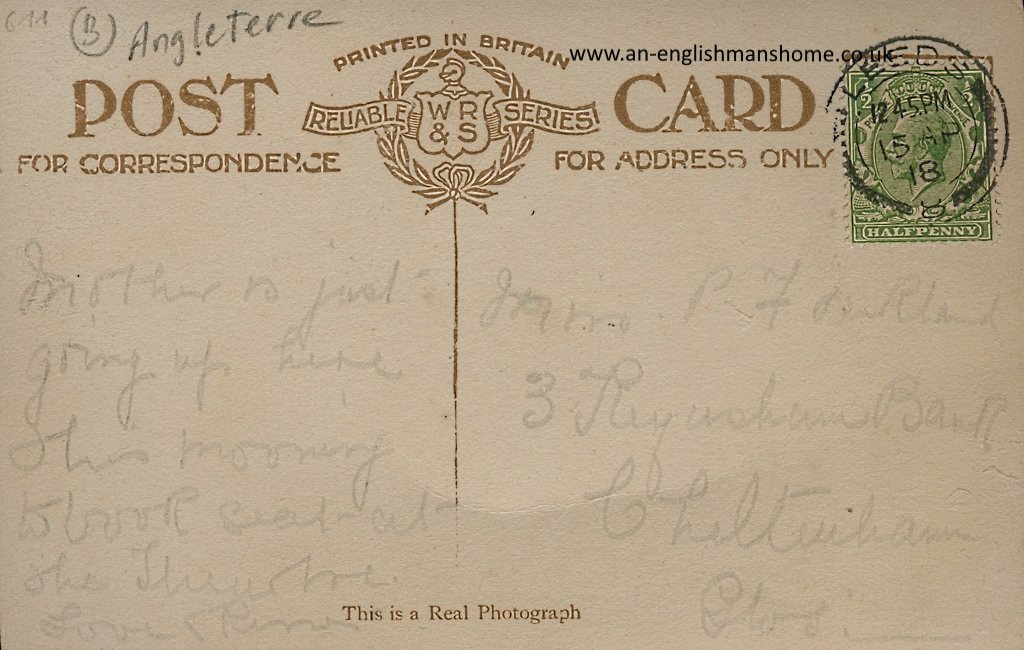 (B) Angleterre
PRINTED IN BRITAIN
www.an-englishmanshome.co.uk
POST CARD
RELIABLE WR & S SERIES
FOR CORRESPONDENCE
FOR ADDRESS ONLY
LEEDS
12 45 PM
15 AP
18
8
HALFPENNY
Mother is just
going up here
This morning
to book seat at
the Theatre
Love & Kisses
Miss P. F
3 Keynsham Bank
Cheltenham
Glos.
This is a Real Photograph